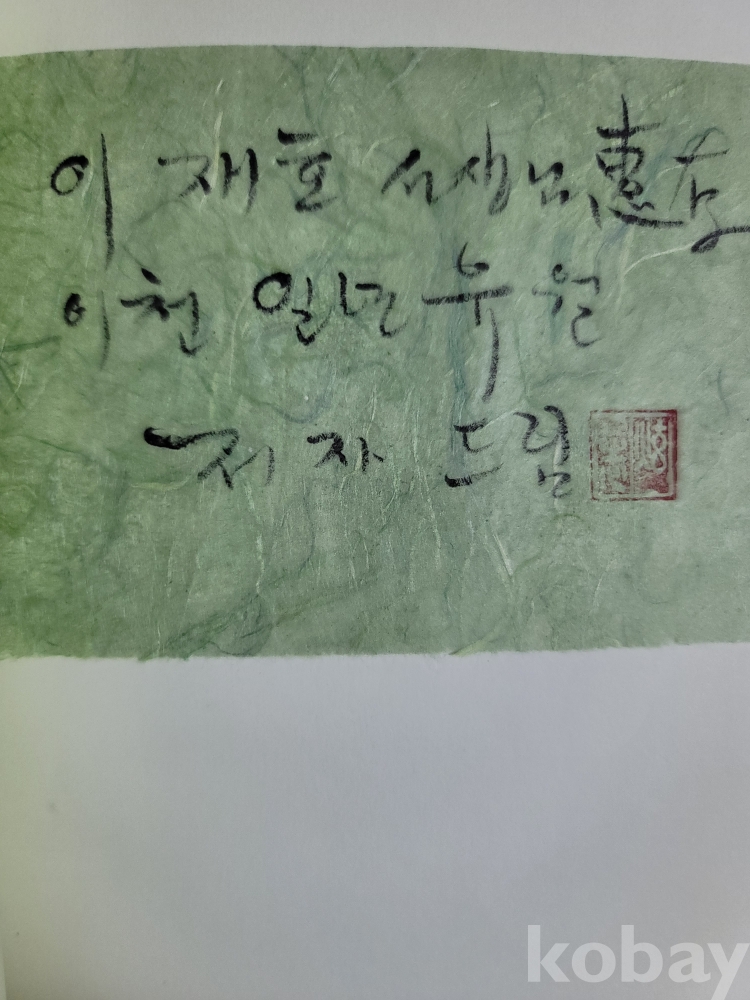 이 재호 선생님 惠存
이천 일년 유월
저자 드림
kobay